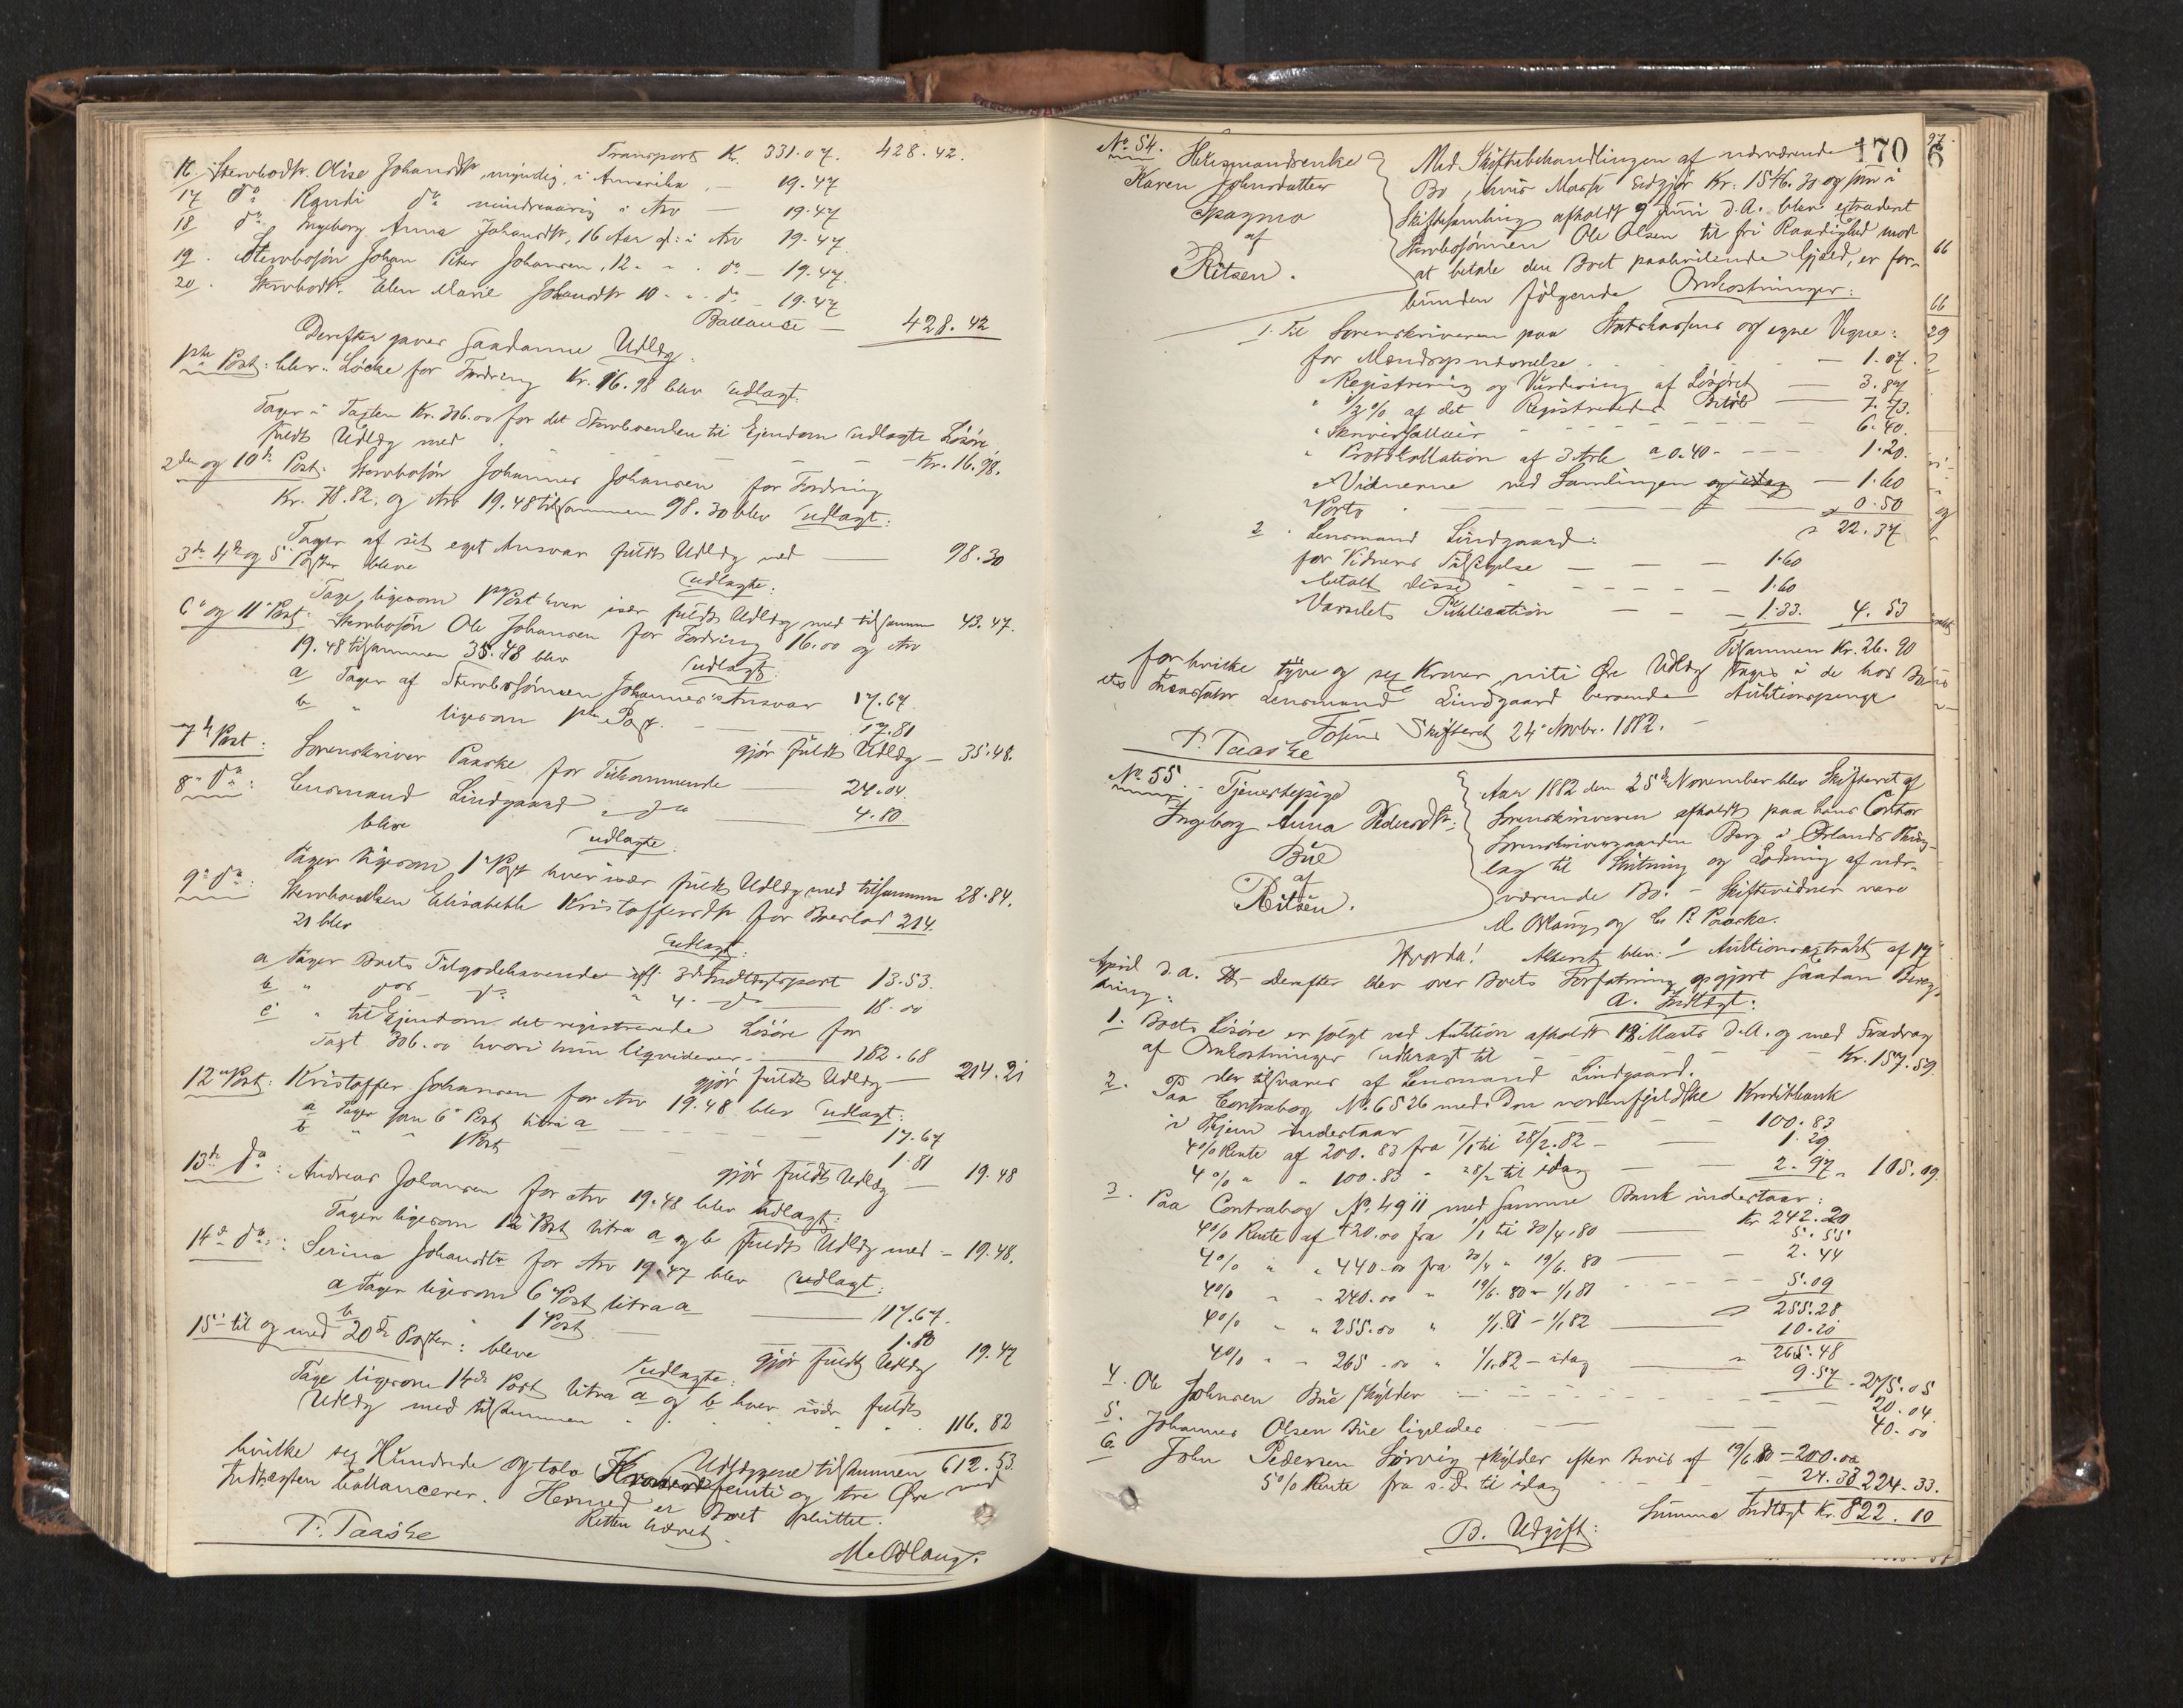 Transport Kr. 331.07. 428.42.
16. Stervbodtr. Olise Johansdtr, myndig, i Amerika, — 19.47
17 do Randi do mindreaarig i Arv — 19.47
18 do Ingeborg Anna Johansdtr, 16 Aar gl: i Arv 19.47
19. Stervbosøn Johan Peter Johansen, 12 " " . do — 19.47.
20. Stervbodtr. Elen Marie Johansdtr 10 " " do — 19.47
Ballance — 428.42
Derefter gaves saadanne Udlæg.
1ste Post: blev Løcke for Fordring Kr. 16.98 blev udlagt:
Tager i Taxten Kr. 306.00 for det Stervboenken til Ejendom udlagte Løsøre
fuldt Udlæg med — — — Kr. 16.98.
2den og 10de Post: Stervbosøn Johannes Johansen for Fordring
Kr. 78.82. og Arv 19.48 tilsammen 98.30 blev udlagt:
Tager af sit eget Ansvar fuldt Udlæg med — 98.30
3de 4de og 5te Poster bleve udlagte:
Tage, ligesom 1ste Post hver især fuldt Udlæg med tilsammen 43.47.
6te og 11te Post: Stervbosøn Ole Johansen for Fordring 16.00 og Arv
19.48 tilsammen 35.48 blev udlagt:
a Tager af Stervbosønnen Johannes's Ansvar 17.67
b " ligesom 1ste Post. — 17.81
gjør fuldt Udlæg — 35.48.
7de Post: Sorenskriver Paaske for Tilkommende — 24.04.
8de do: Lensmand Lindgaard " do — 4.80
bleve udlagte:
Tager ligesom 1ste Post hver især fuldt Udlæg med tilsammen 28.84.
9de do: Stervboenken Elisabeth Kristoffersdtr for Boeslod 214.
21 blev udlagt:
a Tager Boets Tilgodehavende iflg. 3die Indtægtspost 13.53.
b " do do " 4. do — 18.00
c " til Ejendom det registrerede Løsøre for
Taxt 306.00 hvori hun liqviderer. — 182.68
gjør fuldt Udlæg — 214.21
12te Post: Kristoffer Johansen for Arv 19.48 blev udlagt:
a Tager som 6te Post litra a — 17.67
b " " 1 Post — 1.81
gjør fuldt Udlæg — 19.48
13de do: Andreas Johansen for Arv 19.48 blev udlagt:
Tager ligesom 12te Post litra a og b fuldt Udlæg med — 19.48.
14de do: Serina Johansdtr for Arv 19.47 blev udlagt:
a Tager ligesom 6te Post litra a — 17.67.
b " 1 Post — 1.80
gjør fuldt Udlæg 19.47
15de til og med 20de Poster: bleve udlagte:
Tage ligesom 14de Post litra a og b hver især fuldt
Udlæg med tilsammen 116.82
Udlæggene tilsammen 612.53.
hvilke sex Hundrede og tolv Kroner femti og tre Øre med
Indtægten ballancerer. Hermed er Boet sluttet.
Retten hævet
P. Paaske
M. Ørlang.
170
No. 54.
Huusmandsenke
Karen Johnsdatter
Spagmo
af
Ritsen.
Med Skiftebehandlingen af nærværende
Bo, hvis Masse udgjør Kr: 1546.30 og som i
Skiftesamling afholdt 9 Juni d.A. blev extraderet
Stervbosønnen Ole Olsen til fri Raadighed mod
at betale den Boet paahvilende Gjæld, er for-
bunden følgende Omkostninger:
1. Til Sorenskriveren paa Statskassens og egne Vegne:
for Mandsopnævnelse — 1.07.
" Registrering og Vurdering af Løsøret — 3.87
" 1/2 % af det Registreredes Beløb — 7.73.
" Skriversallair — 6.40.
" Protokollation af 3 Ark a 0.40 — 1.20.
" Vidnerne ved Samlingen — 1.60
" Porto — 0.50
22.37
2. Lensmand Lindgaard:
for Vidners Tilsigelse — 1.60
betalt disse — 1.60
Varselets Publication — 1.33. 4.53
Tilsammen Kr. 26.90
for hvilke tyve og sex Kroner niti Øre Udlæg tages i de hos
Lensmand Lindgaard beroende Auktionspenge
Fosens Skifteret 24 Novbr. 1882.
P. Paaske
No. 55.
Tjenestepige
Ingeborg Anna Pedersdtr:
Bue
af
Ritsen.
Aar 1882 den 25de November blev Skifteret af
Sorenskriveren afholdt paa hans Contor
Sorenskrivergaarden Berg i Ørlands Thing-
lag til Slutning og Lodning af nær-
værende Bo. — Skiftevidner vare
M Ørlang og C. P. Paaske.
Hvorda! Akteret blev: 1 Auktionsextrakt af 17
April d.A. — Derefter blev over Boets Forfatning opgjort saadan Bereg-
ning:
A. Indtægt:
1. Boets Løsøre er solgt ved Auktion afholdt 18 Marts d.A. og med Fradrag
af Omkostninger udbragt til — Kr. 157.59.
der tilsvares af Lensmand Lindgaard.
2. Paa Contrabog No. 6526 med Den nordenfjeldske Kreditbank
i Thjem indestaar — 100.83
4% Rente af 200.83 fra 1/1 til 28/2.82 — 1.29
4% " " 100.83 " 28/2 til idag — 2.97 105.09.
3. Paa Contrabog No. 4911 med samme Bank indestaar:
Kr 242.20
4% Rente af 420.00 fra 1/1 til 30/4.80 — 5.55
4% " " 440.00 fra 30/4 " 19/6.80 — 2.44
4% " " 240.00 " 19/6.80 - 1/1 81 — 5.09
255.28
4% " " 255.00 " 1/1.81 - 1/1 82 — 10.20
265.48
4% " " 265.00 " 1/1.82 - idag — 9.57 275.05
4. Ole Johnsen Bue skylder — 20.04.
5. Johannes Olsen Bue ligeledes — 40.00
6. John Pedersen Sørvig skylder efter Bevis af 19/6 80 — 200.00
5% Rente fra s.D. til idag — 24.33 224.33.
Summa Indtægt Kr. 822.10
B. Udgift: